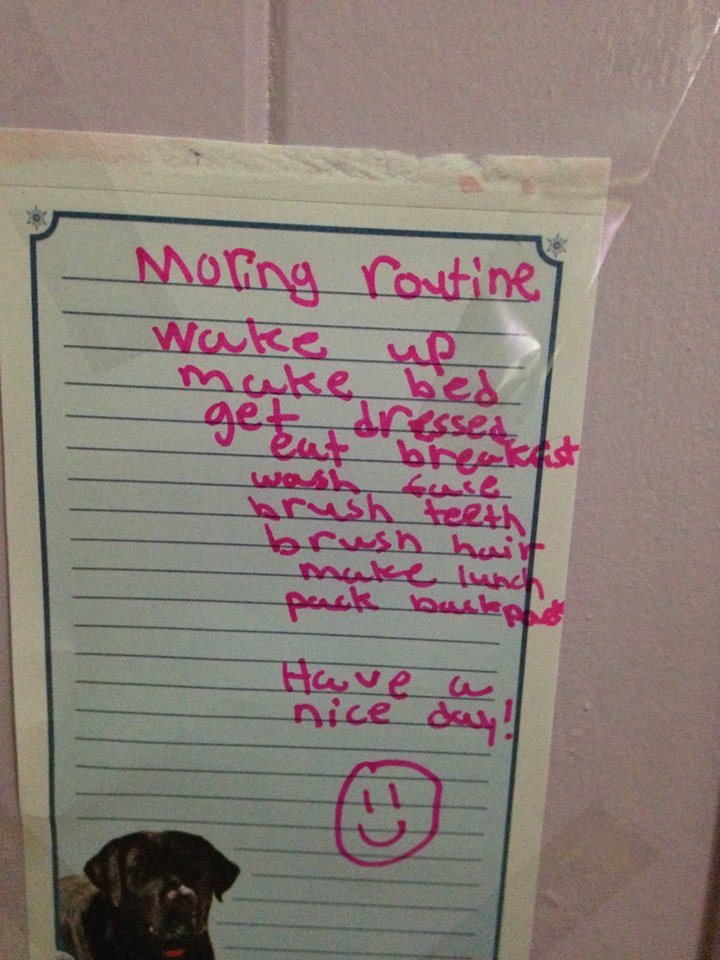 Moring routine
wake up
make bed
get dressed
eat breakfist
wash face
brush teeth
brush hair
make lunch
pack
Have a
nice day!